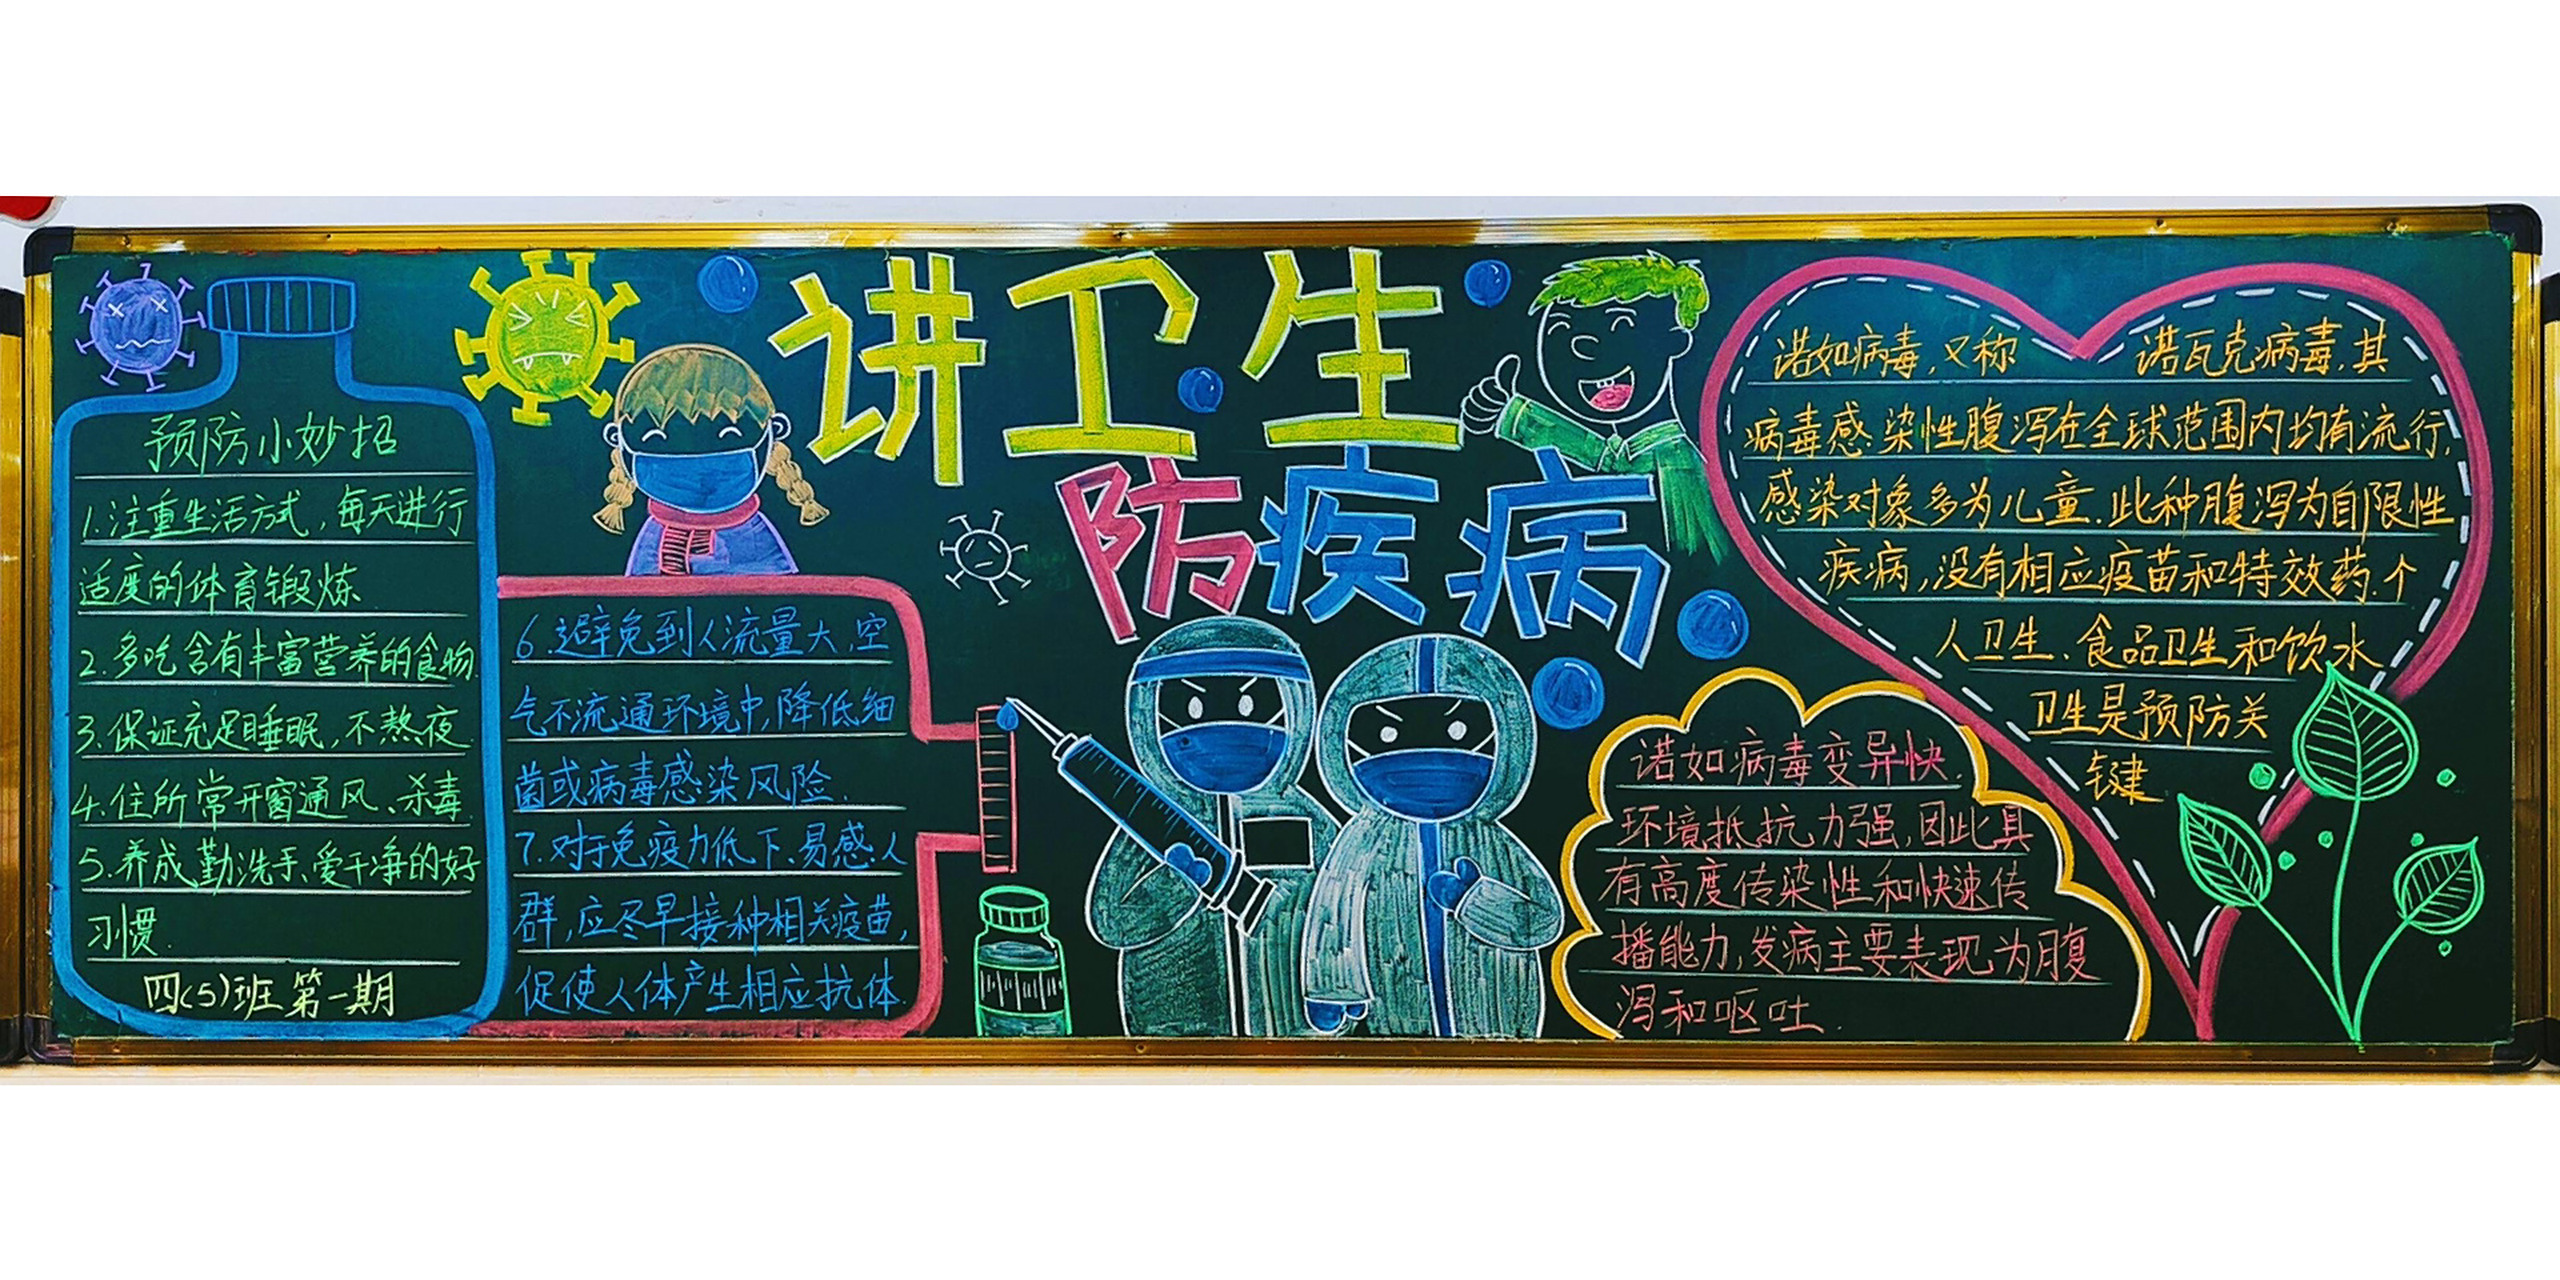 讲卫生
防疾病
预防小妙招
1.注重生活方式，每天进行
适度的体育锻炼
2.多吃含有丰富营养的食物
3.保证充足睡眠，不熬夜
4.住所常开窗通风、杀毒
5.养成勤洗手、爱干净的好
习惯.
四(5)班第一期
6.避免到人流量大,空
气不流通环境中,降低细
菌或病毒感染风险.
7.对于免疫力低下、易感人
群,应尽早接种相关疫苗,
促使人体产生相应抗体.
诺如病毒,又称 诺瓦克病毒.其
病毒感染性腹泻在全球范围内均有流行,
感染对象多为儿童.此种腹泻为自限性
疾病,没有相应疫苗和特效药.个
人卫生、食品卫生和饮水
卫生是预防关
键
诺如病毒变异快.
环境抵抗力强,因此具
有高度传染性和快速传
播能力,发病主要表现为腹
泻和呕吐.